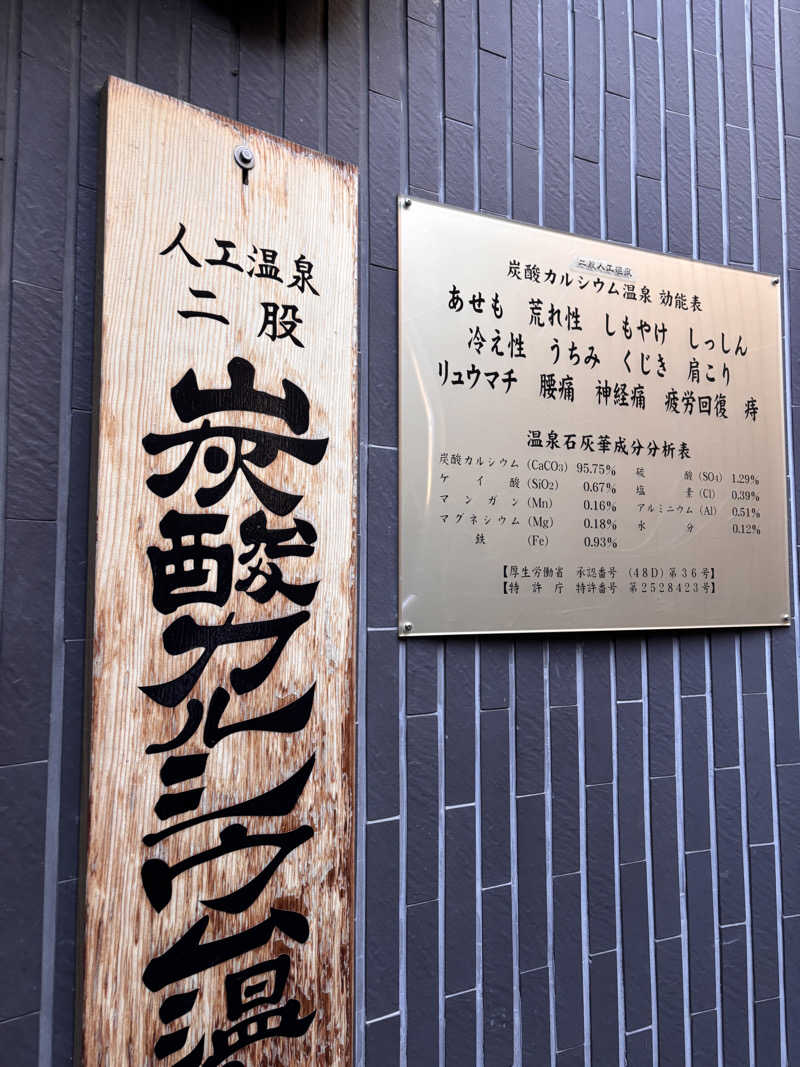 人工温泉
二股
炭酸カルシウム温
二股人工温泉
炭酸カルシウム温泉 効能表
あせも 荒れ性 しもやけ しっしん
冷え性 うちみ くじき 肩こり
リュウマチ 腰痛 神経痛 疲労回復 痔
温泉石灰華成分分析表
炭酸カルシウム (CaCO3) 95.75% 硫酸 (SO4) 1.29%
ケイ酸 (SiO2) 0.67% 塩素 (Cl) 0.39%
マンガン (Mn) 0.16% アルミニウム (Al) 0.51%
マグネシウム (Mg) 0.18% 水分 0.12%
鉄 (Fe) 0.93%
【厚生労働省 承認番号 (48D)第36号】
【特許庁 特許番号 第2528423号】